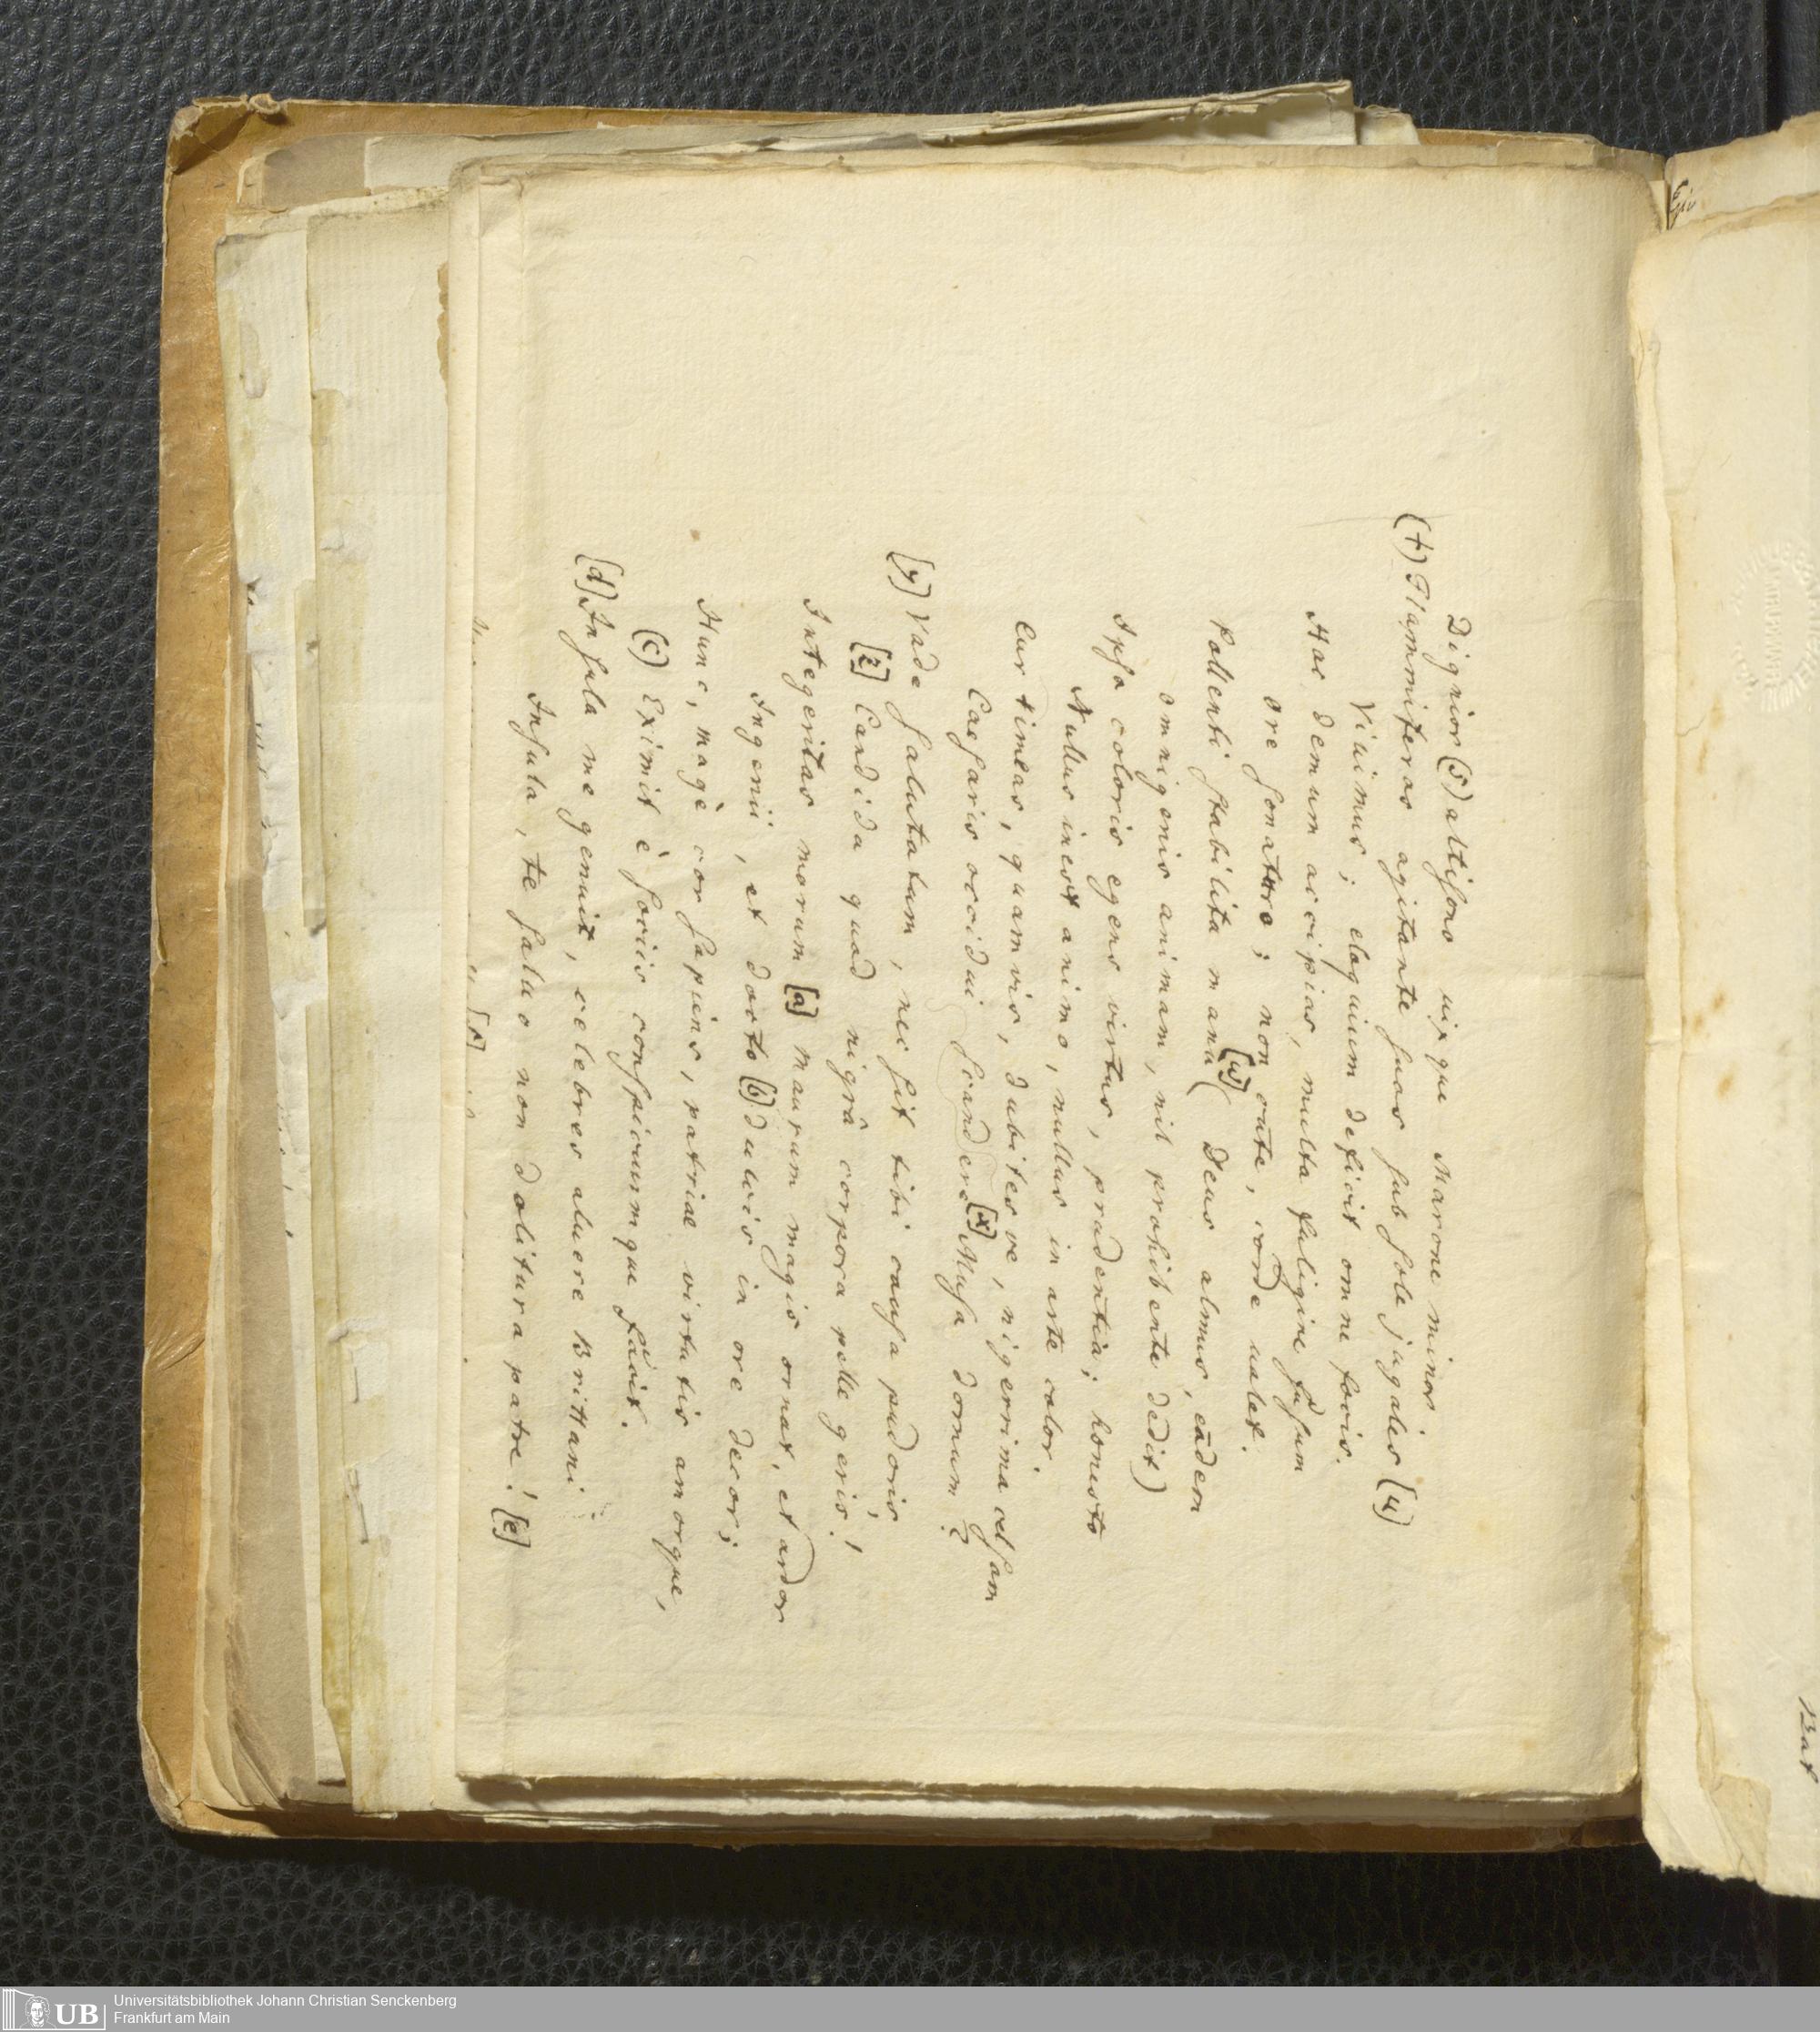 Dignior (s) altisono vixque Marone minor
(t) Flammiferos agitante suos sub sole jugales (u)
Vivimus; eloquium deficit omne focis.
Hoc demum accipias, multa fuligine fusum
Ore sonaturo; non cute, corde valet.
Pollenti stabilita manu [w] (Deus almus, eadem
omnigenis animam, nil prohibente dedit)
Ipsa coloris egens virtus, prudentia; honesto
Nullus inest animo, nullus in arte color.
Cur timeas, quamvis, dubitesve, nigerrima celsam
Caesaris occidui scandere [x] Musa domum?
[y] Vade salutatum, nec sit tibi causa pudoris,
[z] Candida quod nigrâ corpora pelle geris!
Integritas morum [a] Maurum magis ornat, et ardor
Ingenii, et docto [b] dulcis in ore decor;
Hunc, magè cor sapiens, patriae virtutis amorque,
(c) Eximit è sociis conspicuumque facit.
[d] Insula me genuit, celebres aluere Brittani
Insula, te salvo non dolitura patre! [e]
Universitätsbibliothek Johann Christian Senckenberg
Frankfurt am Main
UB